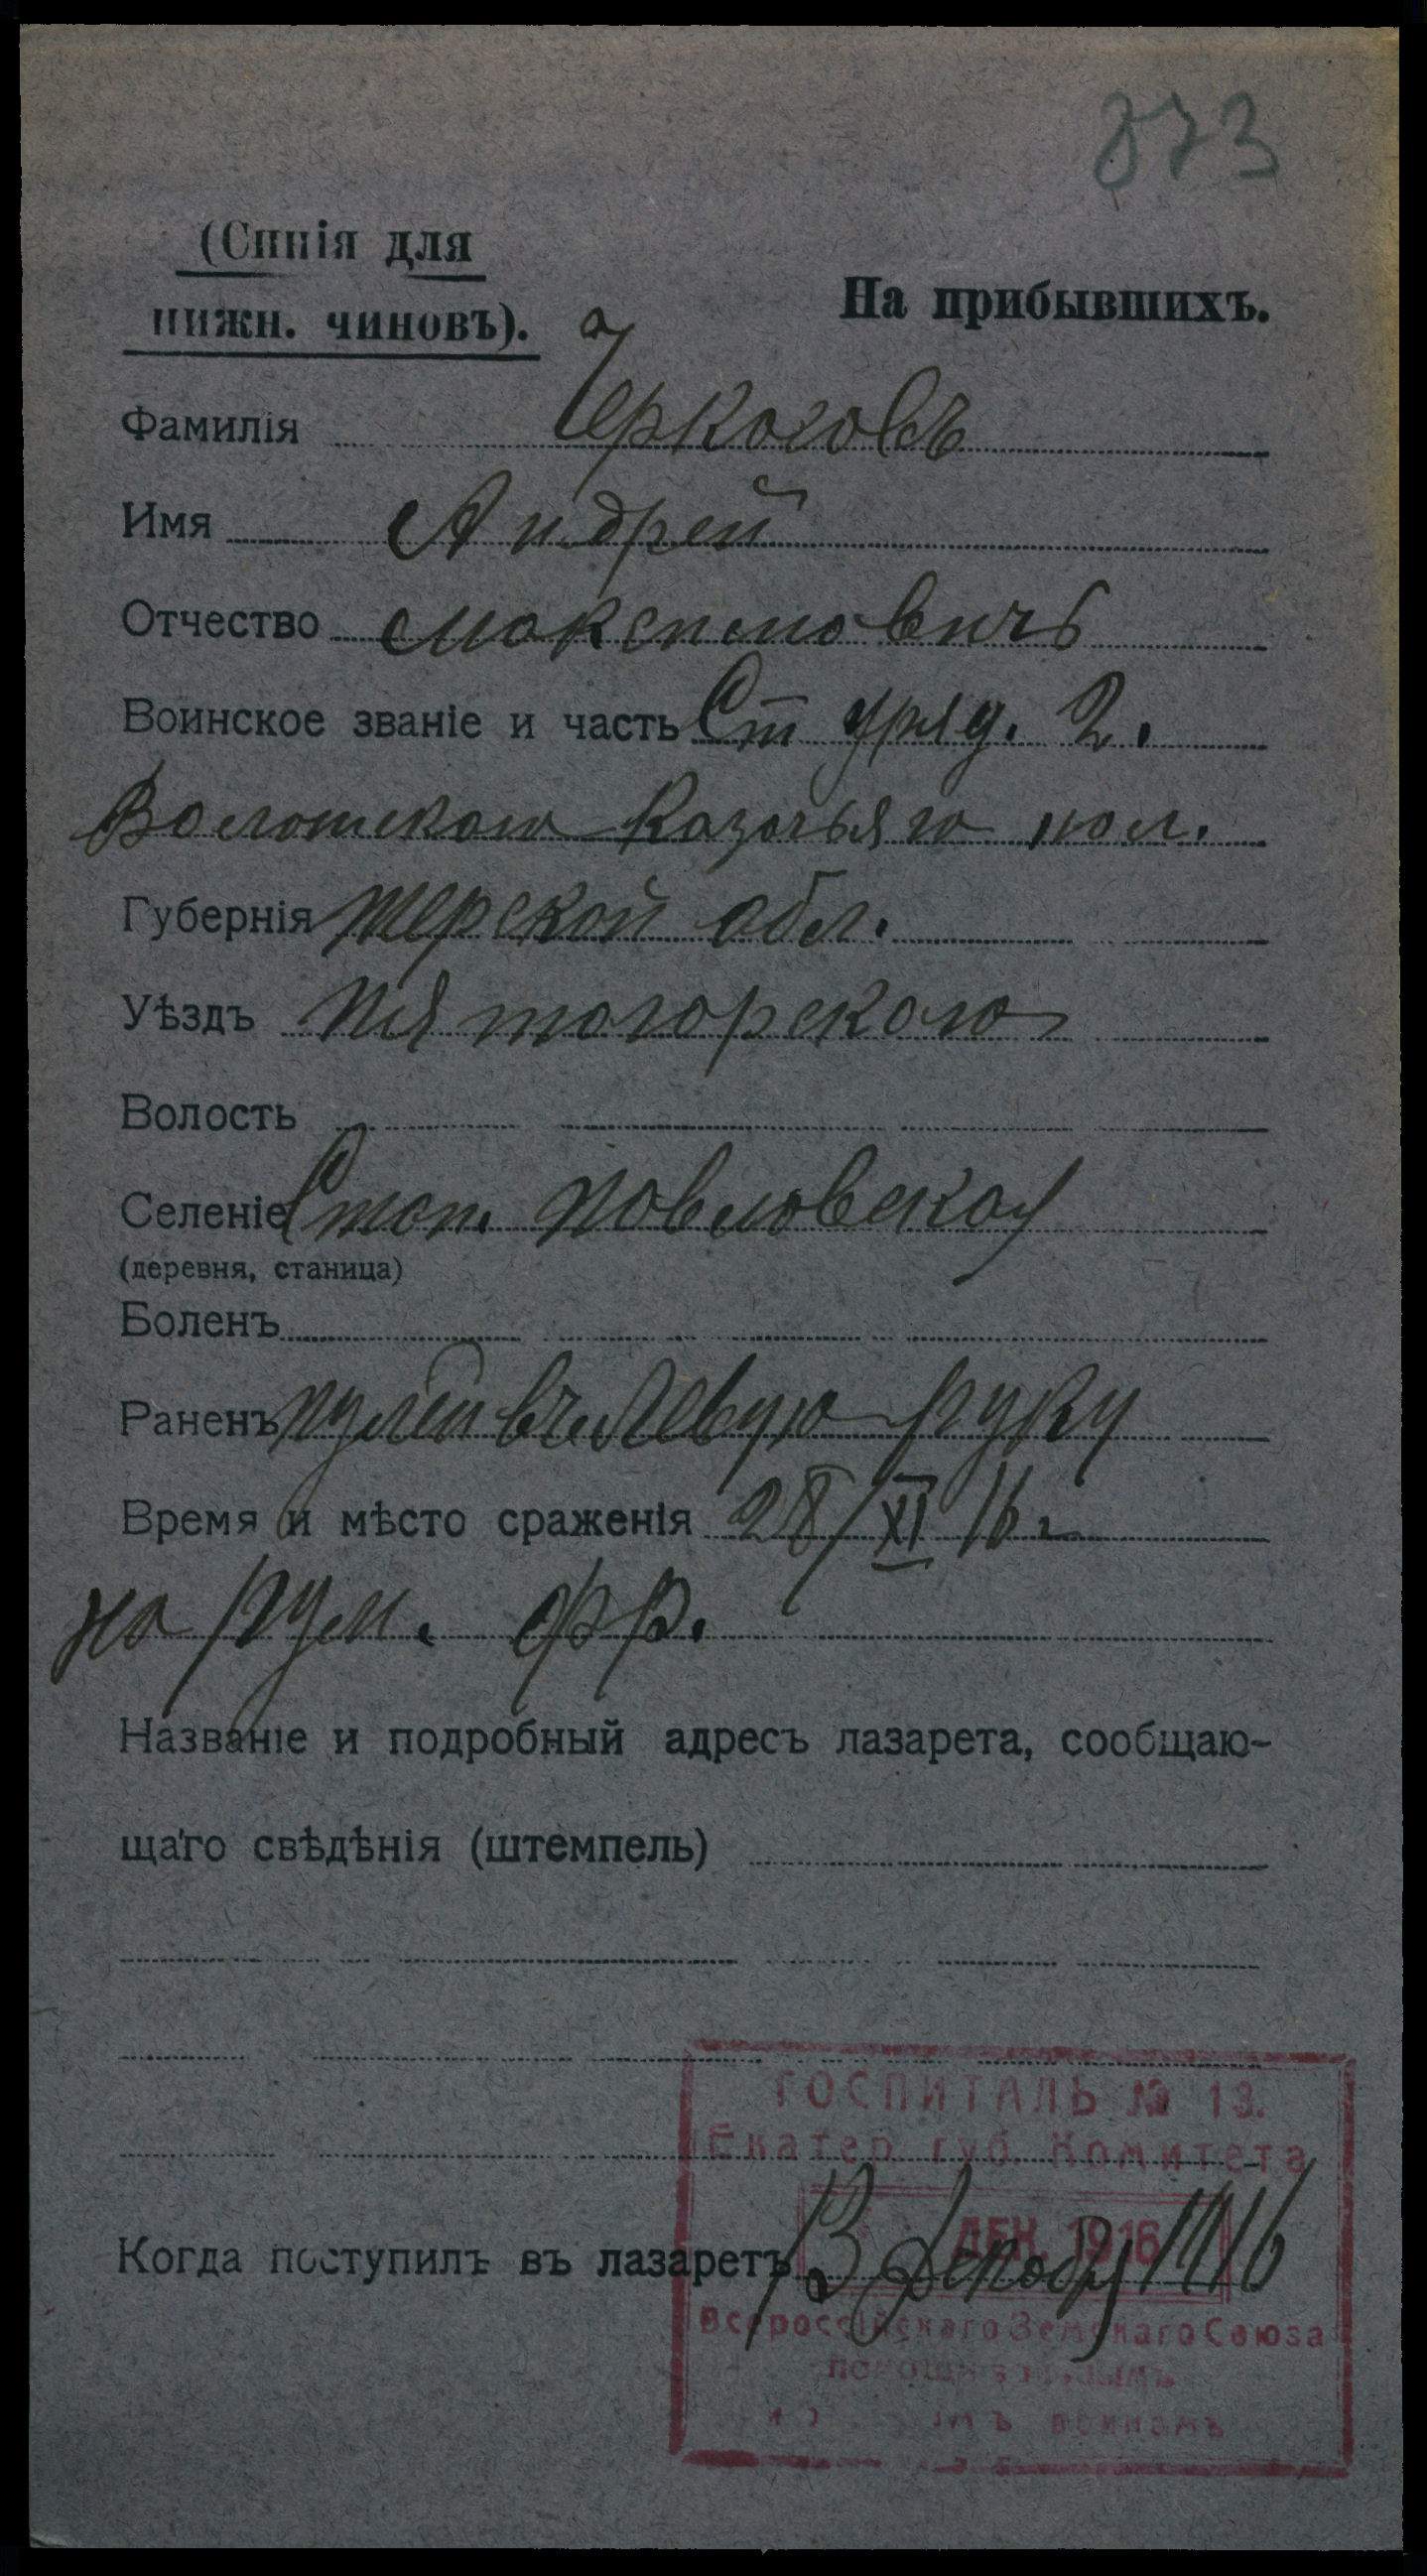 873
(Синія для
нижн. чиновъ).
На прибывшихъ.
Фамилія Черкасовъ
Имя Андрей
Отчество Максимовичъ
Воинское званіе и часть Ст уряд. 2.
Волгскаго Казачьяго пол.
Губернія Терской обл.
Уѣздъ Пятогорскаго
Волость
Селеніе Стан. Павловская
(деревня, станица)
Боленъ
Раненъ пулей въ левую руку
Время и мѣсто сраженія 28/XI 16 г
на рум. фр.
Названіе и подробный адресъ лазарета, сообщаю-
щаго свѣдѣнія (штемпель)
ГОСПИТАЛЬ № 13.
Екатер. губ. Комитета
ДЕК. 1916
Когда поступилъ въ лазаретъ 13 Декабр 1916
Всероссійскаго Земскаго Союза
помощи
воинамъ